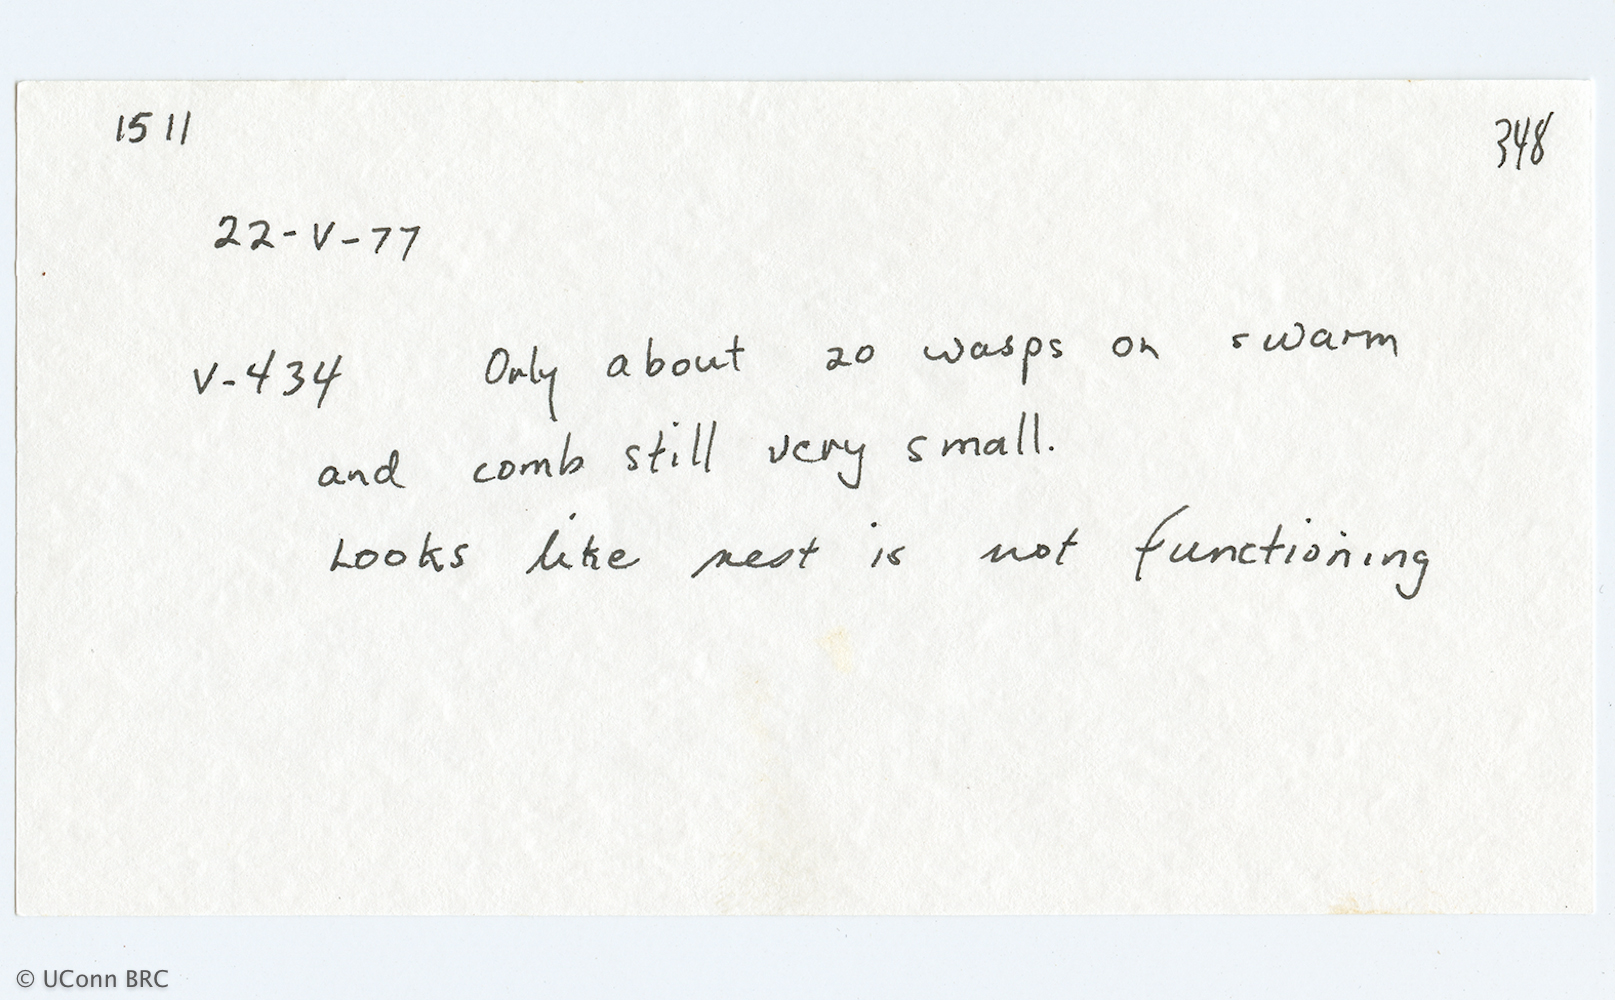 1511 348
22-V-77
V-434 Only about 20 wasps on swarm
and comb still very small.
Looks like nest is not functioning
© UConn BRC